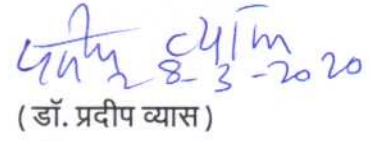 प्रदीप व्यास
8-3-2020
( डॉ. प्रदीप व्यास )